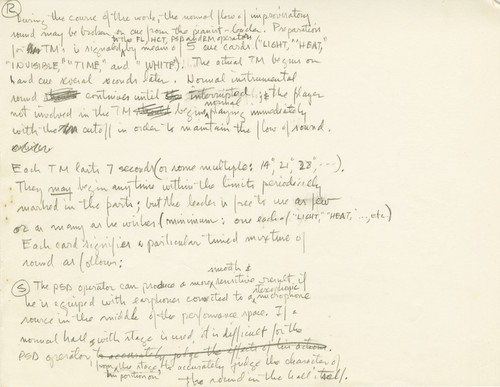 R
During the course of the work, the normal flow of improvisatory
sound may be broken on cue from the pianist-leader. Preparation
in the FL, HCT, PSD and EM operators
for TMs is signaled by means of 5 cue cards ("LIGHT," "HEAT,"
"INVISIBLE," "TIME" and "WHITE"). The actual TM begins on
hand cue several seconds later. Normal instrumental
sound continues until interrupted; the player
normal
not involved in the TM begins playing immediately
with the cutoff in order to maintain the flow of sound.
Each TM lasts 7 seconds (or some multiple: 14", 21", 28", ...).
They may begin any time within the limits periodically
marked in the parts; but the leader is free to use as few
or as many as he wishes (minimum: one each of "LIGHT," "HEAT," ..., etc.)
Each card signifies a particular timed mixture of
sound as follows:
smooth &
S The PSD operator can produce a more sensitive result if
stereophonic
he is equipped with earphones connected to a microphone
source in the middle of the performance space. If a
normal hall with stage is used, it is difficult for the
PSD operator to accurately judge the effects of his actions.
from the stage, to accurately judge the character of
his position on
the sound in the hall itself.